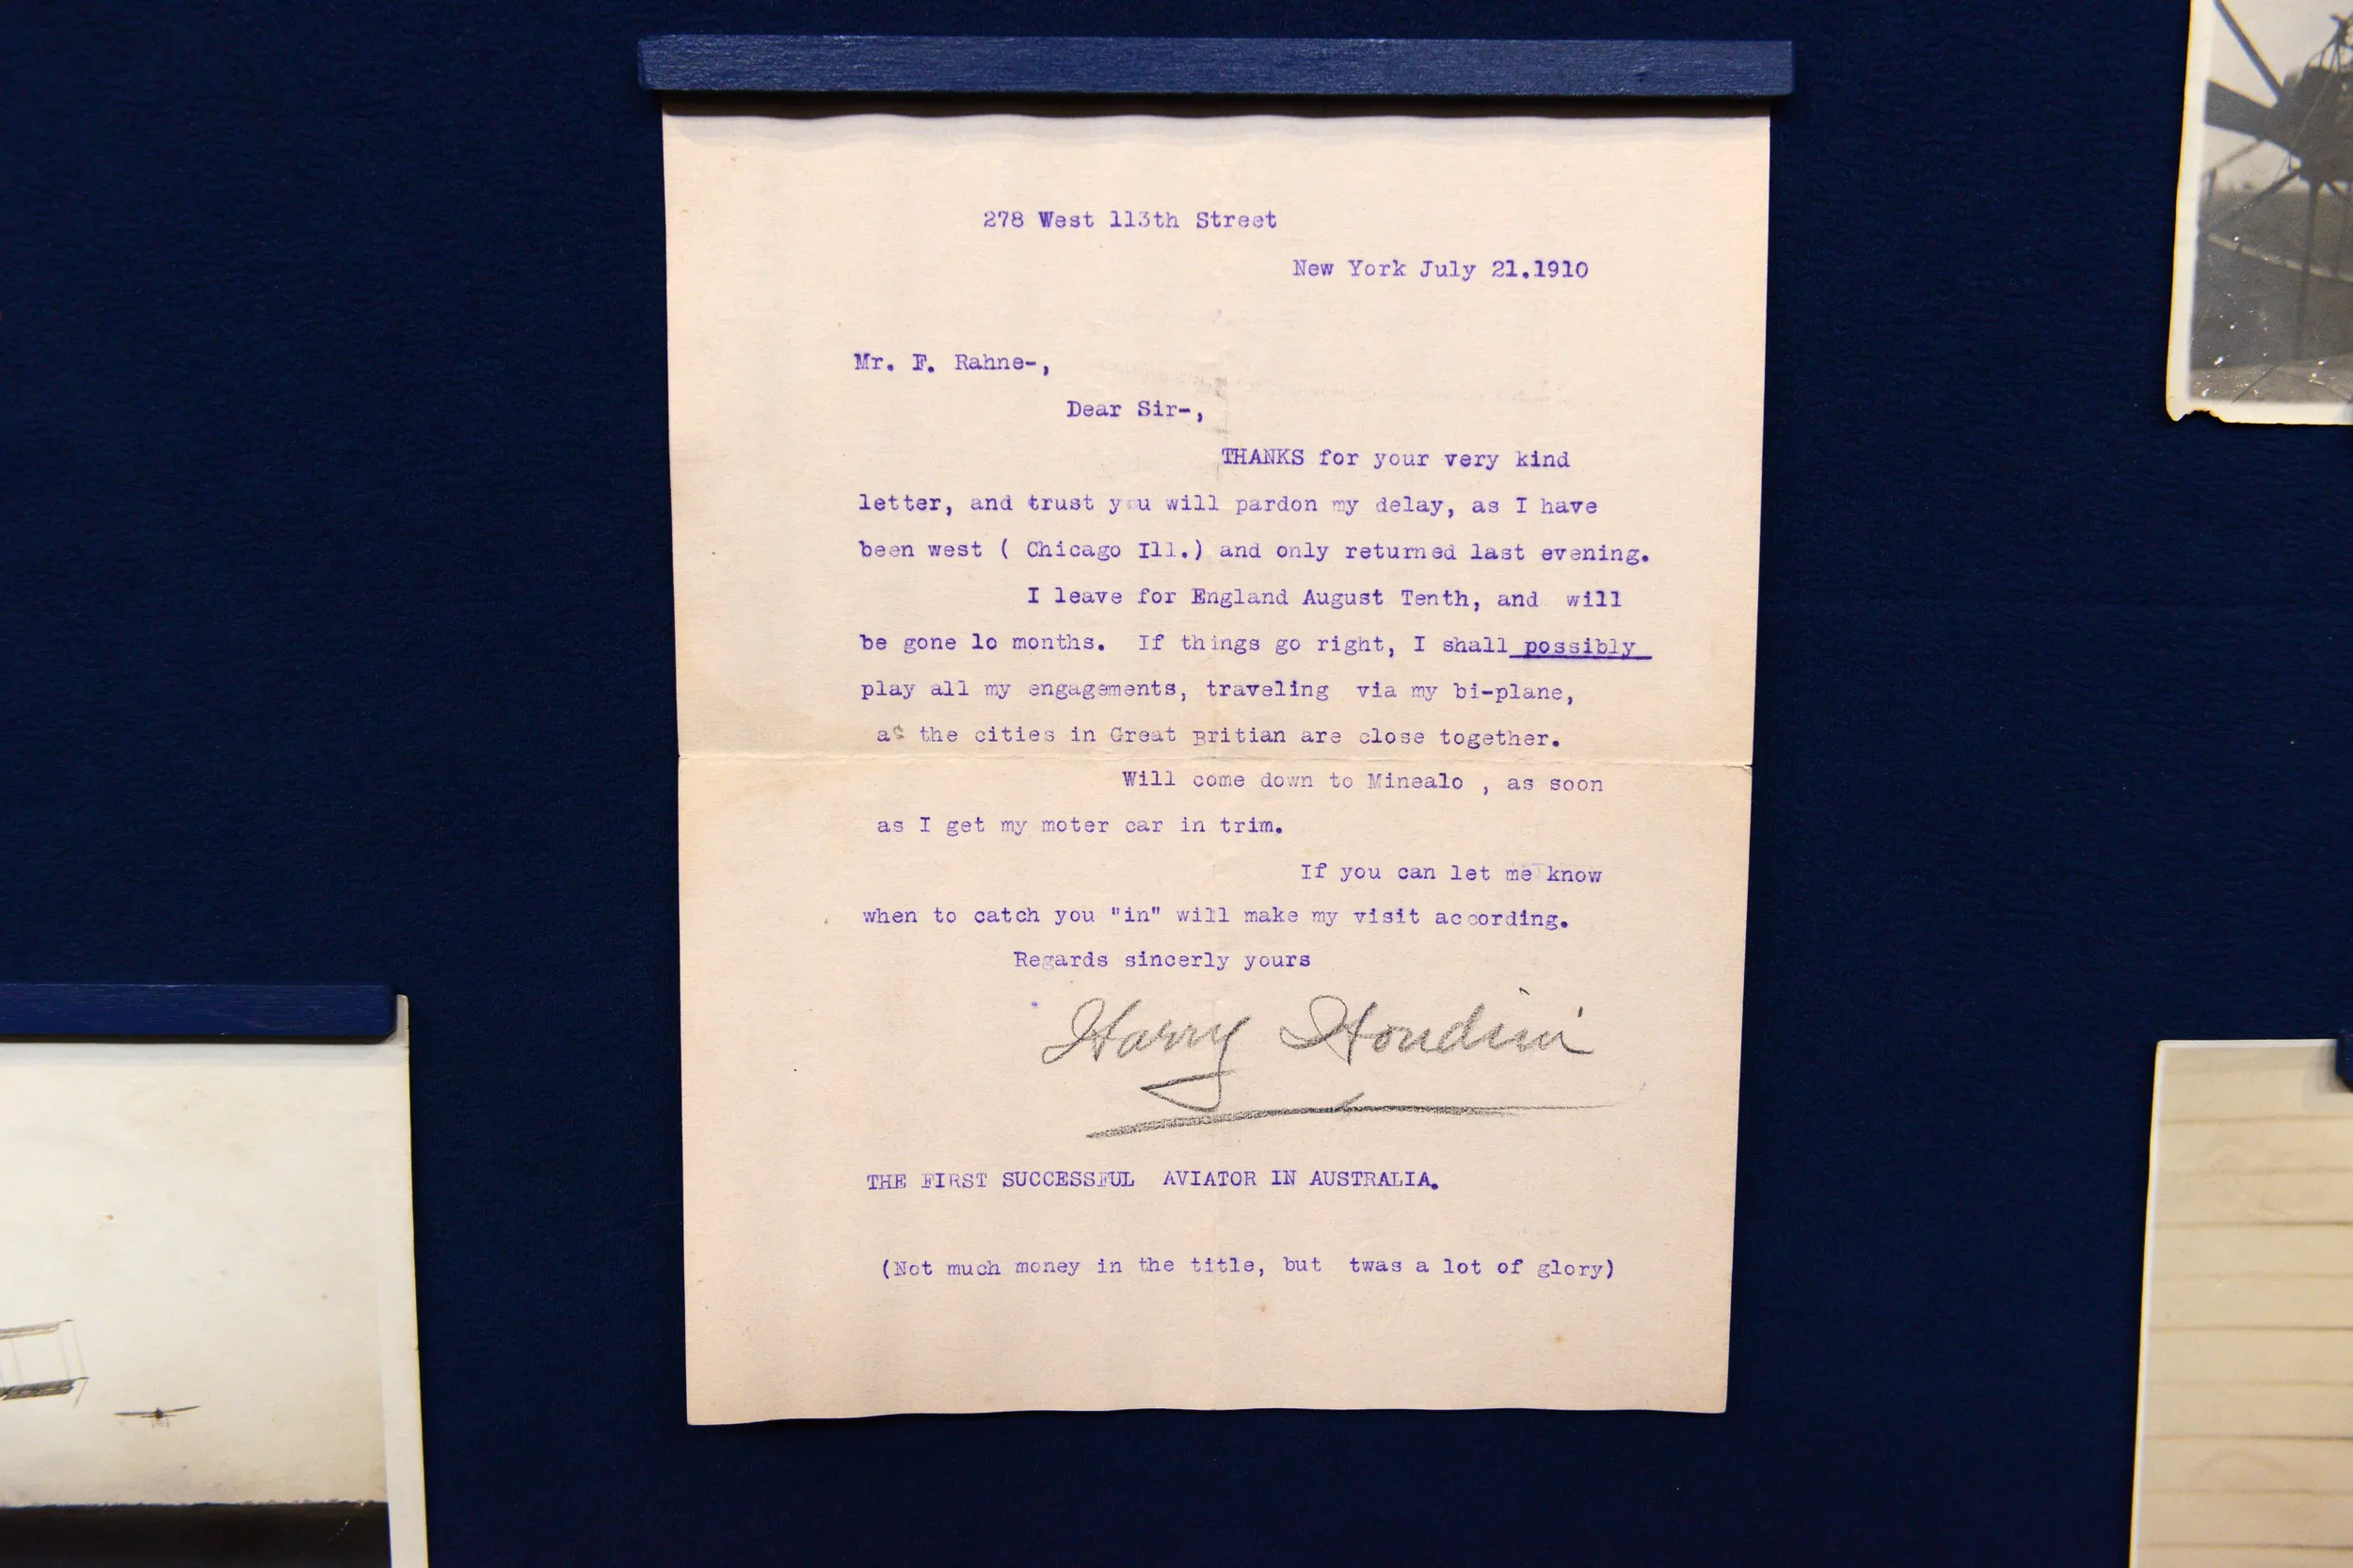 278 West 113th Street
New York July 21.1910
Mr. F. Rahne-,
Dear Sir-,
THANKS for your very kind
letter, and trust you will pardon my delay, as I have
been west ( Chicago Ill.) and only returned last evening.
I leave for England August Tenth, and will
be gone lo months. If things go right, I shall possibly
play all my engagements, traveling via my bi-plane,
as the cities in Great Britian are close together.
Will come down to Minealo , as soon
as I get my moter car in trim.
If you can let me know
when to catch you "in" will make my visit according.
Regards sincerly yours
Harry Houdini
THE FIRST SUCCESSFUL AVIATOR IN AUSTRALIA.
(Not much money in the title, but twas a lot of glory)